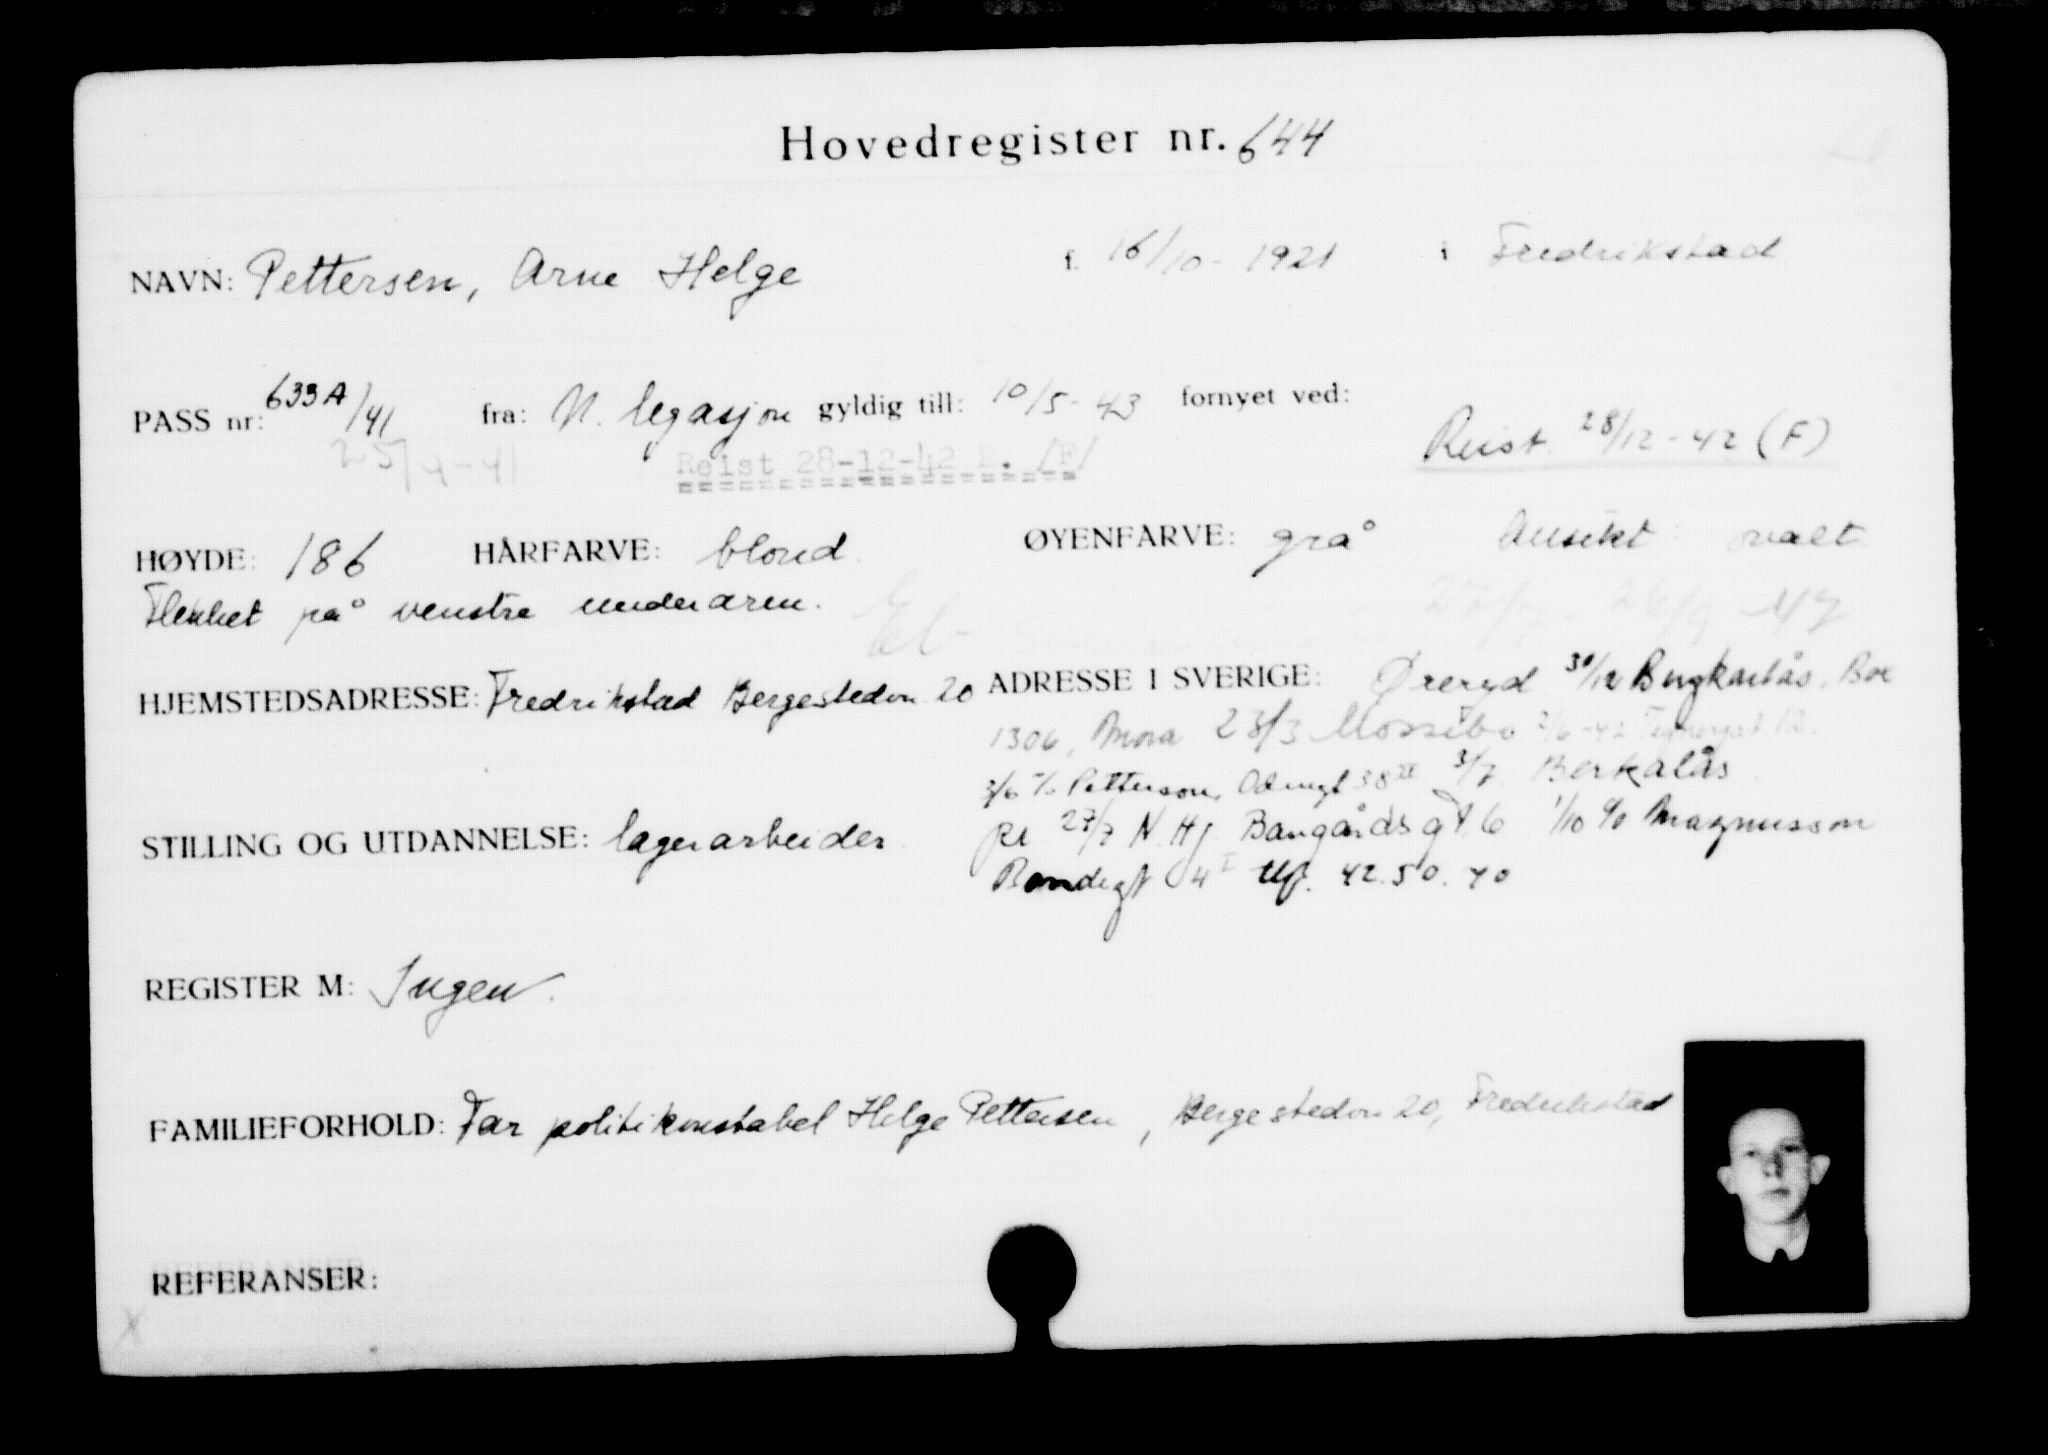 Hovedregister nr. 644
NAVN: Pettersen, Arne Helge f. 16/10 - 1921 i Fredrikstad
PASS nr: 633A/41 fra: N. legasjon gyldig till: 10/5 - 43 fornyet ved:
25/4-41 Reist 28-12-42 /F/ Reist 28/12 - 42 (F)
HØYDE: 186 HÅRFARVE: blond ØYENFARVE: grå Ansikt: ovalt
Flekket på venstre underarm.
HJEMSTEDSADRESSE: Fredrikstad Bergestedvn. 20 ADRESSE I SVERIGE: Øreryd Box
1306, Mora 23/3 Mossebo 2/6-42
3/6 c/o Petterson, Odengt 38 3/7 Berkalås
27/7 N. Hj. Bangårdsgt 6 1/10 c/o Magnusson
Bondegt 4 I tlf. 42.50.40
STILLING OG UTDANNELSE: lagerarbeider
REGISTER M: Ingen.
FAMILIEFORHOLD: Far politikonstabel Helge Pettersen, Bergestedvn 20, Fredrikstad
REFERANSER:
X